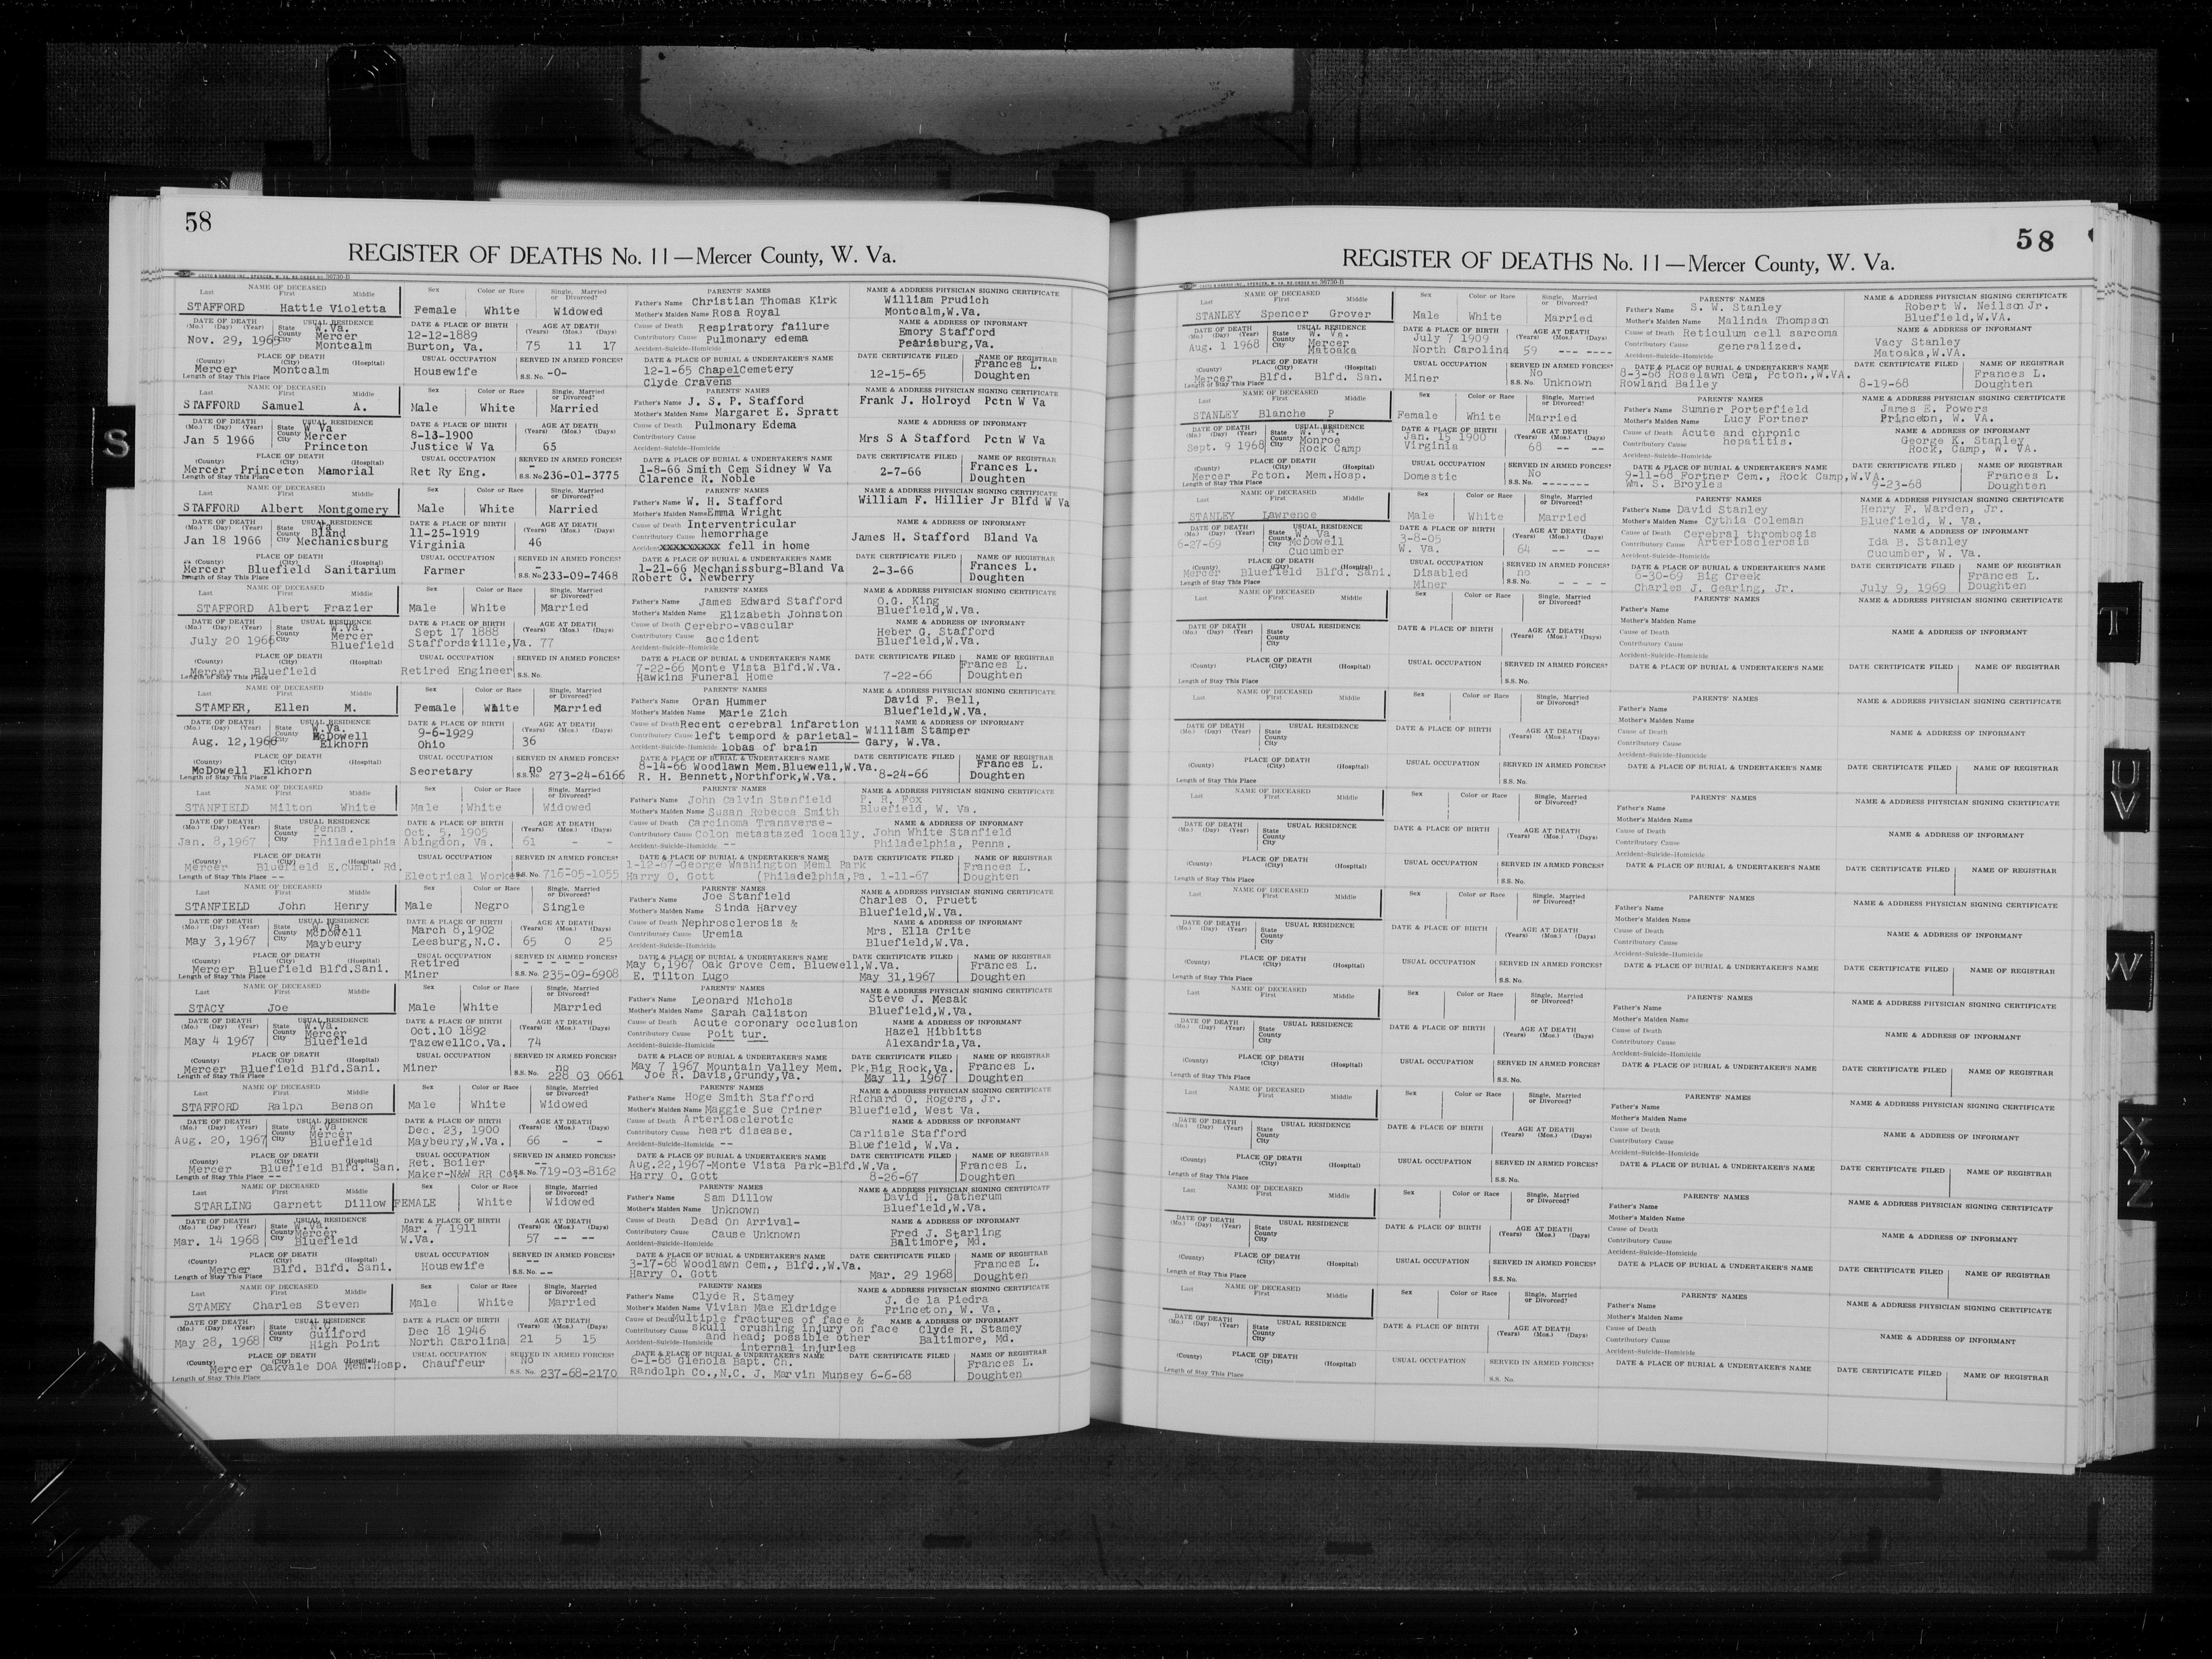 58
REGISTER OF DEATHS No. 11—Mercer County, W. Va.
NAME OF DECEASED Last First Middle Sex Color or Race Single, Married or Divorced? PARENTS' NAMES NAME & ADDRESS PHYSICIAN SIGNING CERTIFICATE
STAFFORD Hattie Violetta Female White Widowed Father's Name Christian Thomas Kirk William Prudich
Mother's Maiden Name Rosa Royal Montcalm,W.Va.
DATE OF DEATH (Mo.) (Day) (Year) USUAL RESIDENCE State W.Va. County Mercer City Montcalm DATE & PLACE OF BIRTH 12-12-1889 AGE AT DEATH (Years) (Mos.) (Days) Cause of Death Respiratory failure NAME & ADDRESS OF INFORMANT
Nov. 29, 1965 Burton, Va. 75 11 17 Contributory Cause Pulmonary edema Emory Stafford
Accident-Suicide-Homicide Pearisburg,Va.
PLACE OF DEATH (County) (City) (Hospital) USUAL OCCUPATION SERVED IN ARMED FORCES? DATE & PLACE OF BURIAL & UNDERTAKER'S NAME DATE CERTIFICATE FILED NAME OF REGISTRAR
Mercer Montcalm Housewife S.S. No. -0- 12-1-65 Chapel Cemetery 12-15-65 Frances L.
Length of Stay This Place Clyde Cravens Doughten
STAFFORD Samuel A. Male White Married Father's Name J. S. P. Stafford Frank J. Holroyd Pctn W Va
Mother's Maiden Name Margaret E. Spratt
Jan 5 1966 W Va Mercer Princeton 8-13-1900 Justice W Va 65 Cause of Death Pulmonary Edema Mrs S A Stafford Pctn W Va
Mercer Princeton Mamorial Ret Ry Eng. - S.S. No. 236-01-3775 1-8-66 Smith Cem Sidney W Va 2-7-66 Frances L.
Clarence R. Noble Doughten
STAFFORD Albert Montgomery Male White Married Father's Name W. H. Stafford William F. Hillier Jr Blfd W Va
Mother's Maiden Name Emma Wright
Jan 18 1966 Va Bland Mechanicsburg 11-25-1919 Virginia 46 Cause of Death Interventricular hemorrhage James H. Stafford Bland Va
xxxxxxxxxx fell in home
Mercer Bluefield Sanitarium Farmer - S.S. No. 233-09-7468 1-21-66 Mechanissburg-Bland Va 2-3-66 Frances L.
Robert C. Newberry Doughten
STAFFORD Albert Frazier Male White Married Father's Name James Edward Stafford O.G. King
Mother's Maiden Name Elizabeth Johnston Bluefield,W.Va.
July 20 1966 W.Va. Mercer Bluefield Sept 17 1888 Staffordsville,Va. 77 Cause of Death Cerebro-vascular accident Heber G. Stafford
Bluefield,W.Va.
Mercer Bluefield Retired Engineer S.S. No. 7-22-66 Monte Vista Blfd.W.Va. 7-22-66 Frances L.
Hawkins Funeral Home Doughten
STAMPER, Ellen M. Female White Married Father's Name Oran Hummer David F. Bell,
Mother's Maiden Name Marie Zich Bluefield,W.Va.
Aug. 12,1966 W.Va. McDowell Elkhorn 9-6-1929 Ohio 36 Cause of Death Recent cerebral infarction left tempord & parietal- lobas of brain William Stamper
Gary, W.Va.
McDowell Elkhorn Secretary no S.S. No. 273-24-6166 8-14-66 Woodlawn Mem.Bluewell,W.Va. 8-24-66 Frances L.
R. H. Bennett,Northfork,W.Va. Doughten
STANFIELD Milton White Male White Widowed Father's Name John Calvin Stanfield P. R. Fox
Mother's Maiden Name Susan Rebecca Smith Bluefield, W. Va.
Jan. 8,1967 Penna. -- Philadelphia Oct. 5, 1905 Abingdon, Va. 61 - - Cause of Death Carcinoma Transverse- Colon metastazed locally. -- John White Stanfield
Philadelphia, Penna.
Mercer Bluefield E.Cumb. Rd. Electrical Worker S.S. No. 716-05-1055 1-12-67-George Washington Meml Park Frances L.
Length of Stay This Place -- Harry O. Gott (Philadelphia,Pa. 1-11-67 Doughten
STANFIELD John Henry Male Negro Single Father's Name Joe Stanfield Charles O. Pruett
Mother's Maiden Name Sinda Harvey Bluefield,W.Va.
May 3,1967 W.Va. McDowell Maybeury March 8,1902 Leesburg,N.C. 65 0 25 Cause of Death Nephrosclerosis & Uremia Mrs. Ella Crite
Bluefield,W.Va.
Mercer Bluefield Blfd.Sani. Retired Miner - - - - - S.S. No. 235-09-6908 May 6,1967 Oak Grove Cem. Bluewell,W.Va. Frances L.
E. Tilton Lugo May 31,1967 Doughten
STACY Joe Male White Married Father's Name Leonard Nichols Steve J. Mesak
Mother's Maiden Name Sarah Caliston Bluefield,W.Va.
May 4 1967 W.Va. Mercer Bluefield Oct.10 1892 TazewellCo.Va. 74 Cause of Death Acute coronary occlusion Poit tur. Hazel Hibbitts
Alexandria,Va.
Mercer Bluefield Blfd.Sani. Miner no S.S. No. 228 03 0661 May 7 1967 Mountain Valley Mem. Pk,Big Rock,Va. Frances L.
Joe R. Davis,Grundy,Va. May 11, 1967 Doughten
STAFFORD Ralph Benson Male White Widowed Father's Name Hoge Smith Stafford Richard O. Rogers, Jr.
Mother's Maiden Name Maggie Sue Criner Bluefield, West Va.
Aug. 20, 1967 W.Va. Mercer Bluefield Dec. 23, 1900 Maybeury,W.Va. 66 - - Cause of Death Arteriosclerotic heart disease. -- Carlisle Stafford
Bluefield, W.Va.
Mercer Bluefield Blfd. San. Ret. Boiler Maker-N&W RR Co. -- S.S. No. 719-03-8162 Aug.22,1967-Monte Vista Park-Blfd.W.Va. Frances L.
Length of Stay This Place -- Harry O. Gott 8-26-67 Doughten
STARLING Garnett Dillow FEMALE White Widowed Father's Name Sam Dillow David H. Gatherum
Mother's Maiden Name Unknown Bluefield,W.Va.
Mar. 14 1968 W.Va. Mercer Bluefield Mar. 7 1911 W.Va. 57 -- -- Cause of Death Dead On Arrival- Cause Unknown Fred J. Starling
Baltimore, Md.
Mercer Blfd. Blfd. Sani. Housewife -- S.S. No. -- 3-17-68 Woodlawn Cem., Blfd.,W.Va. Frances L.
Harry O. Gott Mar. 29 1968 Doughten
STAMEY Charles Steven Male White Married Father's Name Clyde R. Stamey J. de la Piedra
Mother's Maiden Name Vivian Mae Eldridge Princeton, W. Va.
May 28, 1968 N.C. Guilford High Point Dec 18 1946 North Carolina 21 5 15 Cause of Death Multiple fractures of face & skull crushing injury on face and head; possible other internal injuries Clyde R. Stamey
Baltimore, Md.
Mercer Oakvale DOA Mem.Hosp. Chauffeur No S.S. No. 237-68-2170 6-1-68 Glenola Bapt. Ch. Frances L.
Randolph Co.,N.C. J. Marvin Munsey 6-6-68 Doughten
58
REGISTER OF DEATHS No. 11—Mercer County, W. Va.
STANLEY Spencer Grover Male White Married Father's Name S. W. Stanley Robert W. Neilson Jr.
Mother's Maiden Name Malinda Thompson Bluefield,W.VA.
Aug. 1 1968 W. Va. Mercer Matoaka July 7 1909 North Carolina 59 --- ---- Cause of Death Reticulum cell sarcoma generalized. Vacy Stanley
Matoaka,W.VA.
Mercer Blfd. Blfd. San. Miner No S.S. No. Unknown 8-3-68 Roselawn Cem, Pcton.,W.VA. Frances L.
Rowland Bailey 8-19-68 Doughten
STANLEY Blanche P Female White Married Father's Name Sumner Porterfield James E. Powers
Mother's Maiden Name Lucy Fortner Princeton, W. VA.
Sept. 9 1968 W. VA. Monroe Rock Camp Jan. 15 1900 Virginia 68 -- -- Cause of Death Acute and chronic hepatitis. George K. Stanley
Rock, Camp, W. VA.
Mercer Pcton. Mem.Hosp. Domestic No S.S. No. ------- 9-11-68 Fortner Cem., Rock Camp,W.VA. Frances L.
Wm. S. Broyles 9-23-68 Doughten
STANLEY Lawrence Male White Married Father's Name David Stanley Henry F. Warden, Jr.
Mother's Maiden Name Cythia Coleman Bluefield, W. Va.
6-27-69 W. Va. McDowell Cucumber 3-8-05 W. Va. 64 -- -- Cause of Death Cerebral thrombosis Arteriosclerosis Ida B. Stanley
Cucumber, W. Va.
Mercer Bluefield Blfd. Sani. Disabled Miner no S.S. No. - - - - 6-30-69 Big Creek Frances L.
Charles J. Gearing, Jr. July 9, 1969 Doughten
S
T
UV
W
XYZ